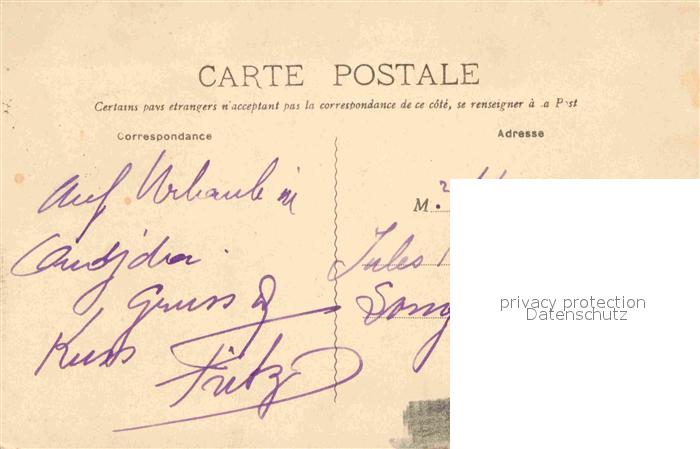 CARTE POSTALE
Certains pays etrangers n'acceptant pas la correspondance de ce côté, se renseigner à la Post
Correspondance
Adresse
Auf Urlaub in
Oudjda.
Gruss &
Kuss
Fritz
M.
Jules
privacy protection
Datenschutz